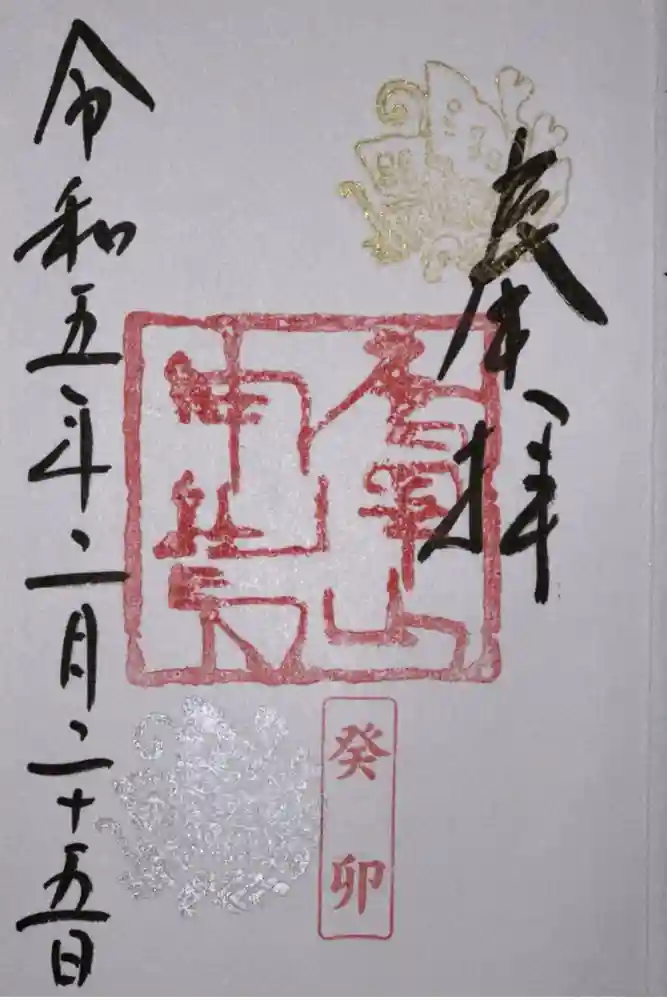 奉拝
癸卯
令和五年二月二十五日